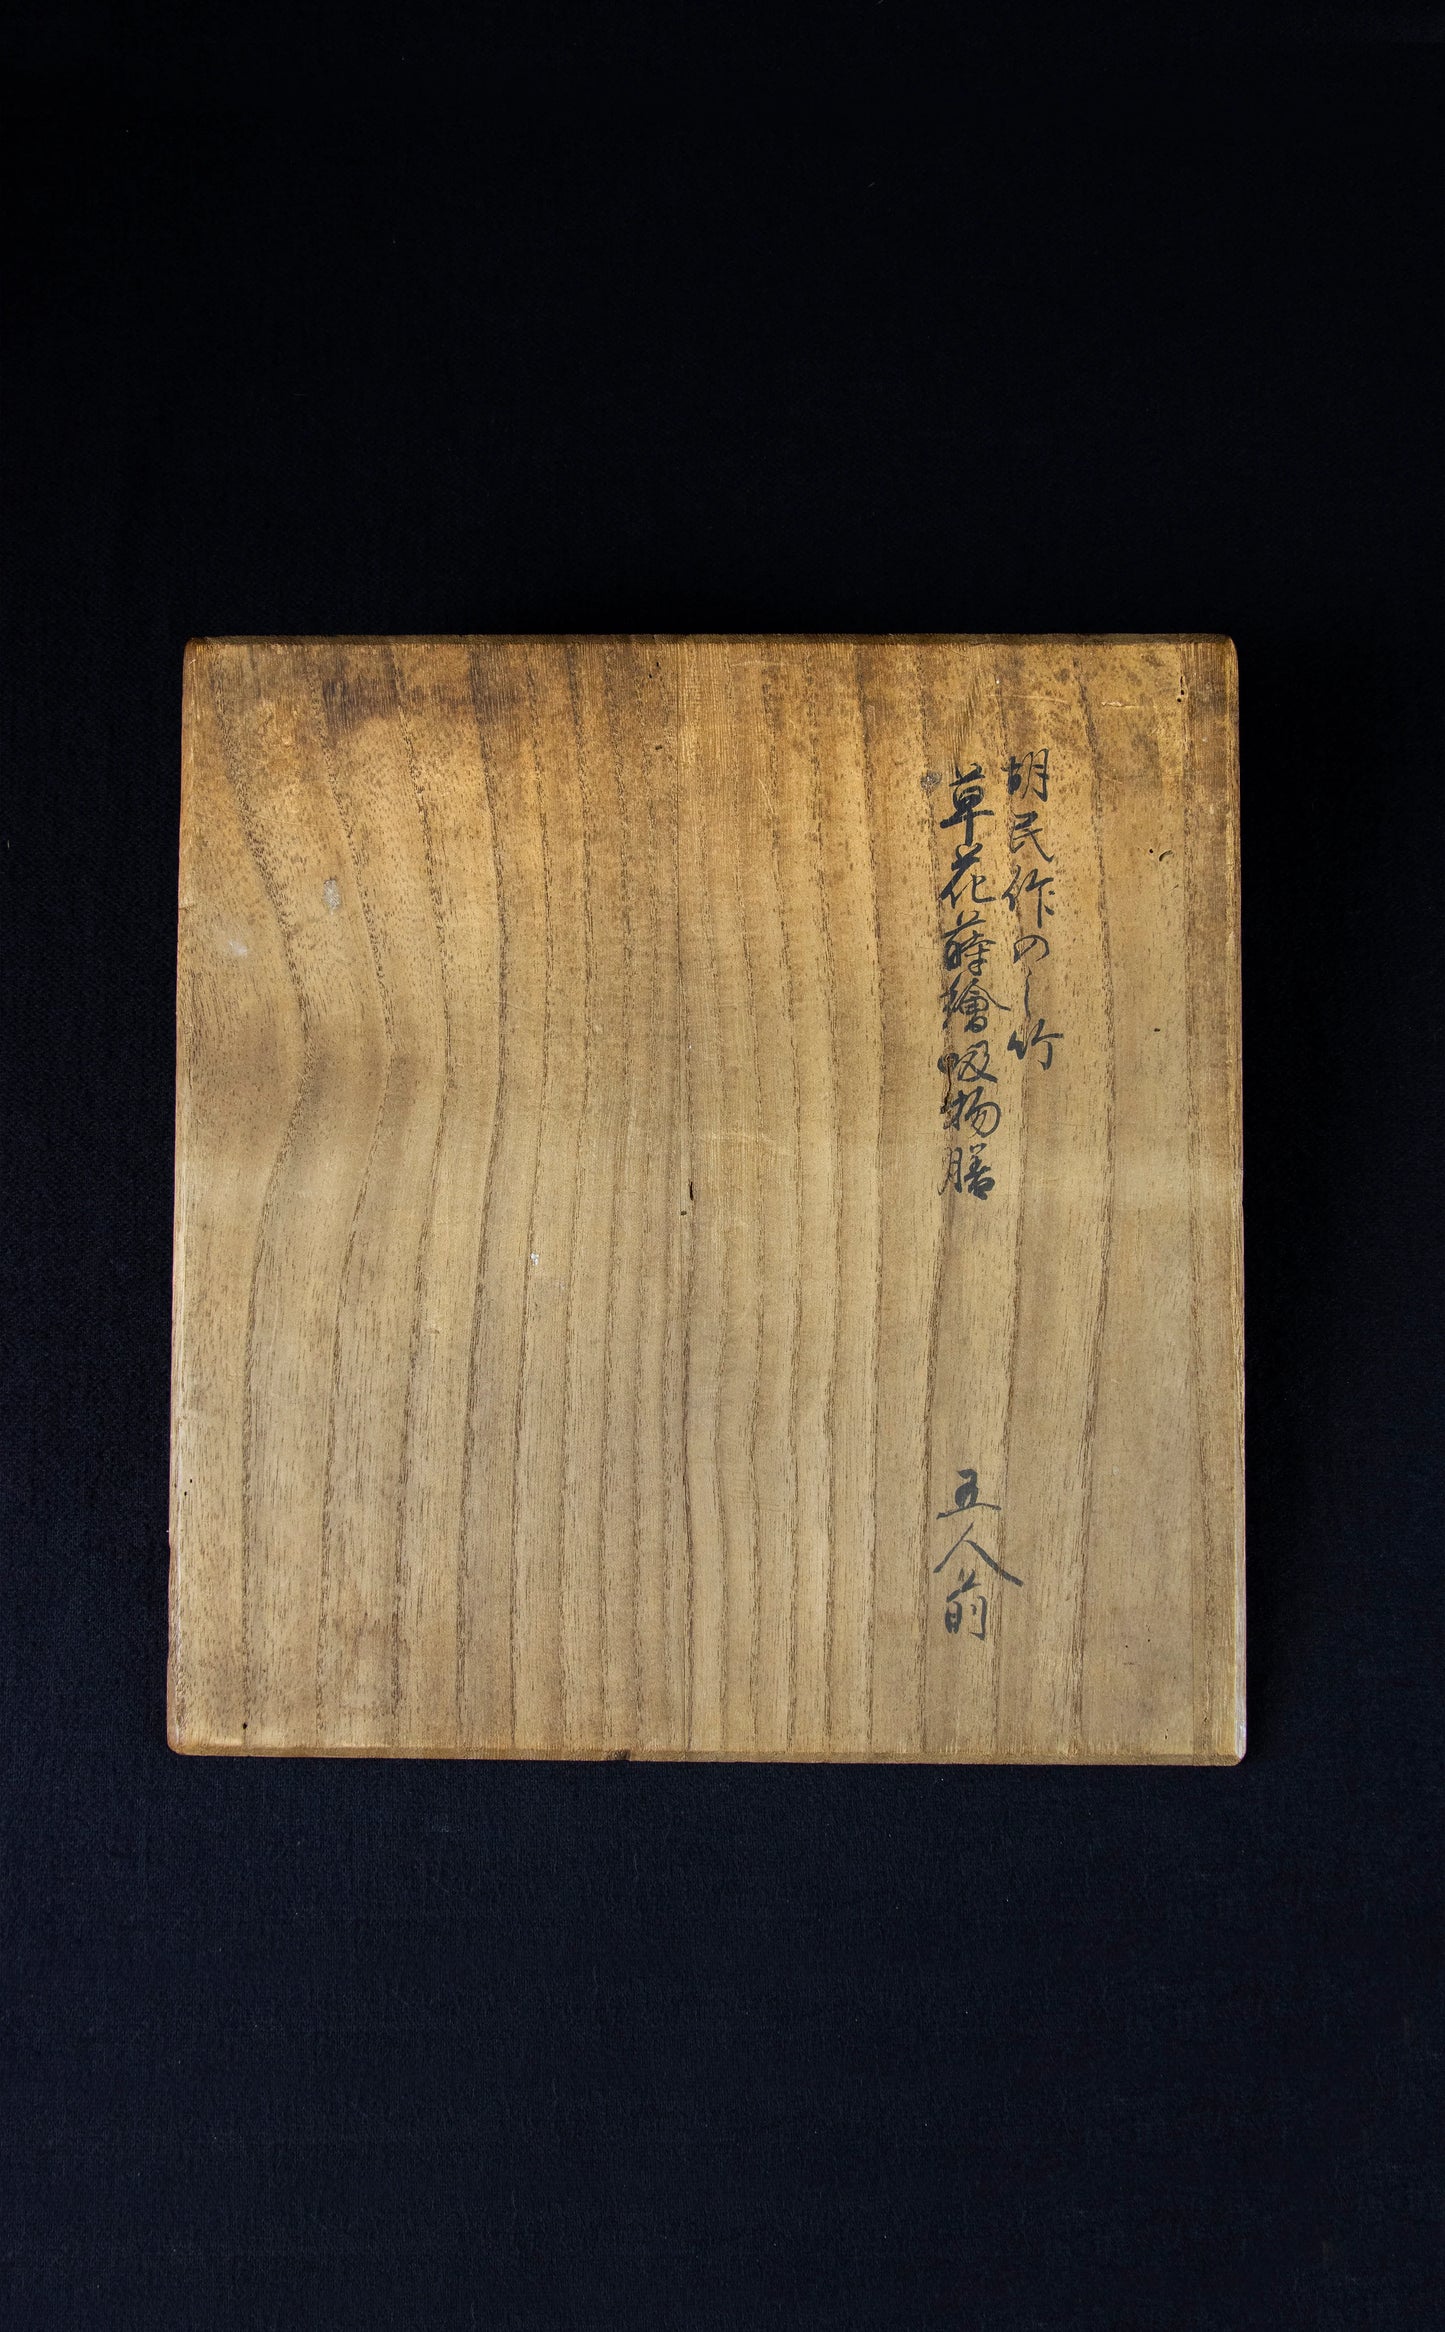 胡民作のし竹
草花蒔繪吸物膳
五人前